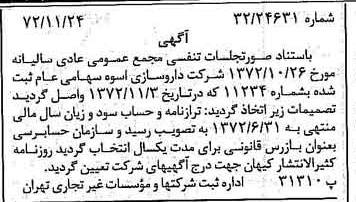 شماره ۳۲/۲۴۶۳۱ ۷۲/۱۱/۲۴
آگهی
باستناد صورتجلسات تنفسی مجمع عمومی عادی سالیانه
مورخ ۱۳۷۲/۱۰/۲۶ شرکت داروسازی اسوه سهامی عام ثبت
شده بشماره ۱۱۲۳۴ که درتاریخ ۱۳۷۲/۱۱/۳ واصل گردید
تصمیمات زیر اتخاذ گردید: ترازنامه و حساب سود و زیان سال مالی
منتهی به ۱۳۷۲/۶/۳۱ به تصویب رسید و سازمان حسابرسی
بعنوان بازرس قانونی برای مدت یکسال انتخاب گردید روزنامه
کثیرالانتشار کیهان جهت درج آگهیهای شرکت تعیین گردید.
پ ۳۱۳۱۰ اداره ثبت شرکتها و مؤسسات غیر تجاری تهران